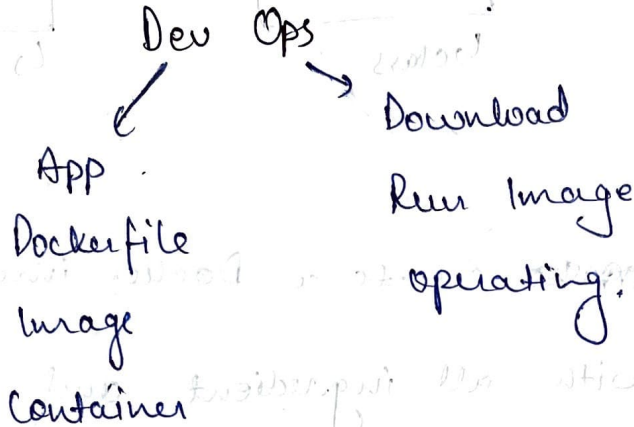 Dev Ops
App
Dockerfile
Image
Container
Download
Run Image
operating.